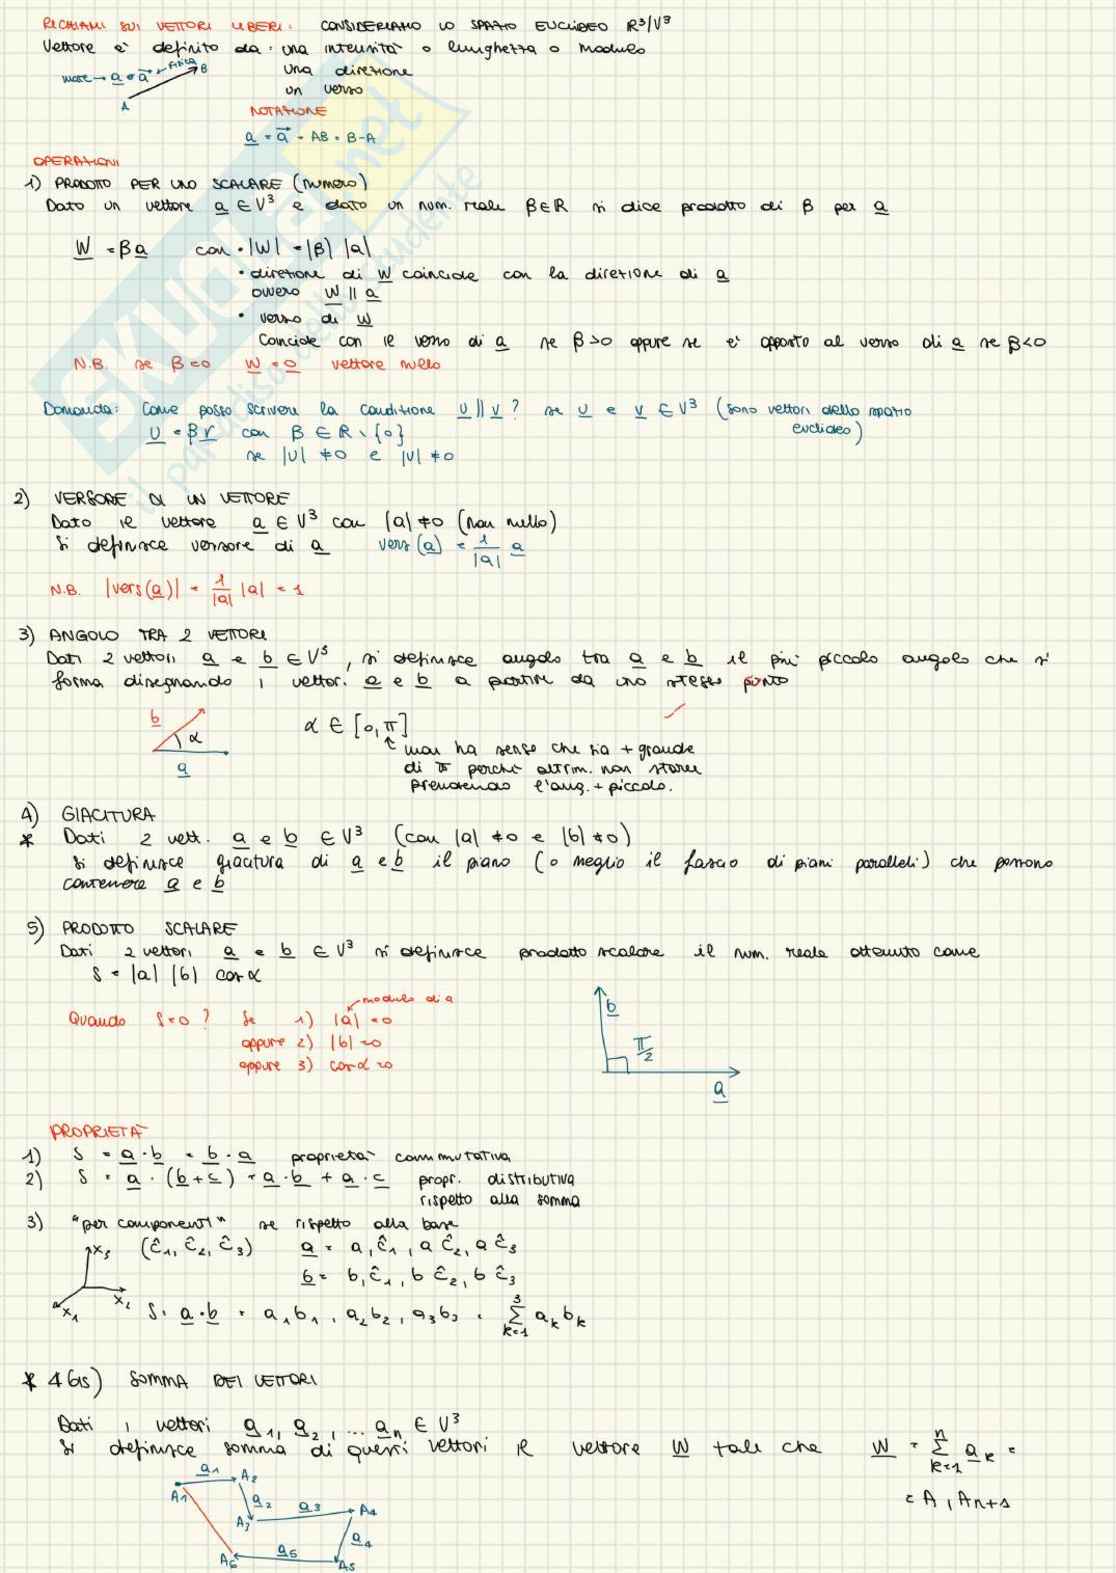 RICHIAMI SUI VETTORI LIBERI: CONSIDERIAMO LO SPAZIO EUCLIDEO R³/V³
Vettore è definito da: una intensità o lunghezza o modulo
una direzione
un verso
mate → a o a⃗ ← Fisica
A B
NOTAZIONE
a = a⃗ = AB = B-A
OPERAZIONI
1) PRODOTTO PER UNO SCALARE (numero)
Dato un vettore a ∈ V³ e dato un num. reale β∈R si dice prodotto di β per a
W = βa con • |W| = |β| |a|
• direzione di W coincide con la direzione di a
ovvero W ∥ a
• verso di W
Coincide con il verso di a se β>0 oppure se è opposto al verso di a se β<0
N.B. se β=0 W=0 vettore nullo
Domanda: Come posso scrivere la condizione U ∥ V? se U e V ∈ V³ (sono vettori dello spazio
euclideo)
U = βV con β ∈ R \ {0}
se |U| ≠0 e |V| ≠0
2) VERSORE DI UN VETTORE
Dato il vettore a ∈ V³ con |a| ≠0 (non nullo)
Si definisce versore di a vers(a) = 1/|a| a
N.B. |vers(a)| = 1/|a| |a| = 1
3) ANGOLO TRA 2 VETTORI
Dati 2 vettori a e b ∈ V³, si definisce angolo tra a e b il più piccolo angolo che si
forma disegnando i vettori a e b a partire da uno stesso punto
b α a
α ∈ [0,π]
↑ non ha senso che sia + grande
di π perché altrim. non starei
prendendo l'ang. + piccolo.
4) GIACITURA
* Dati 2 vett. a e b ∈ V³ (con |a| ≠0 e |b| ≠0)
si definisce giacitura di a e b il piano (o meglio il fascio di piani paralleli) che possono
contenere a e b
5) PRODOTTO SCALARE
Dati 2 vettori a e b ∈ V³ si definisce prodotto scalare il num. reale ottenuto come
S = |a| |b| cos α
modulo di a
Quando S=0? Se 1) |a| =0
oppure 2) |b| =0
oppure 3) cosα =0
b π/2 a
PROPRIETÀ
1) S = a·b = b·a proprietà commutativa
2) S = a·(b+c) = a·b + a·c propr. distributiva
rispetto alla somma
3) "per componenti" se rispetto alla base
(ĉ₁, ĉ₂, ĉ₃) a = a₁ĉ₁, a ĉ₂, a ĉ₃
b = b₁ĉ₁, b ĉ₂, b ĉ₃
x₃ x₂ x₁
S = a·b = a₁b₁, a₂b₂, a₃b₃ = Σ³ₖ₌₁ aₖbₖ
* 4 bis) SOMMA DEI VETTORI
Dati i vettori a₁, a₂, ... aₙ ∈ V³
Si definisce somma di questi vettori il vettore W tale che W = Σⁿₖ₌₁ aₖ =
= A₁Aₙ₊₁
a₁ A₂
A₁ a₂ a₃ A₄
A₃ a₄
A₆ a₅ A₅